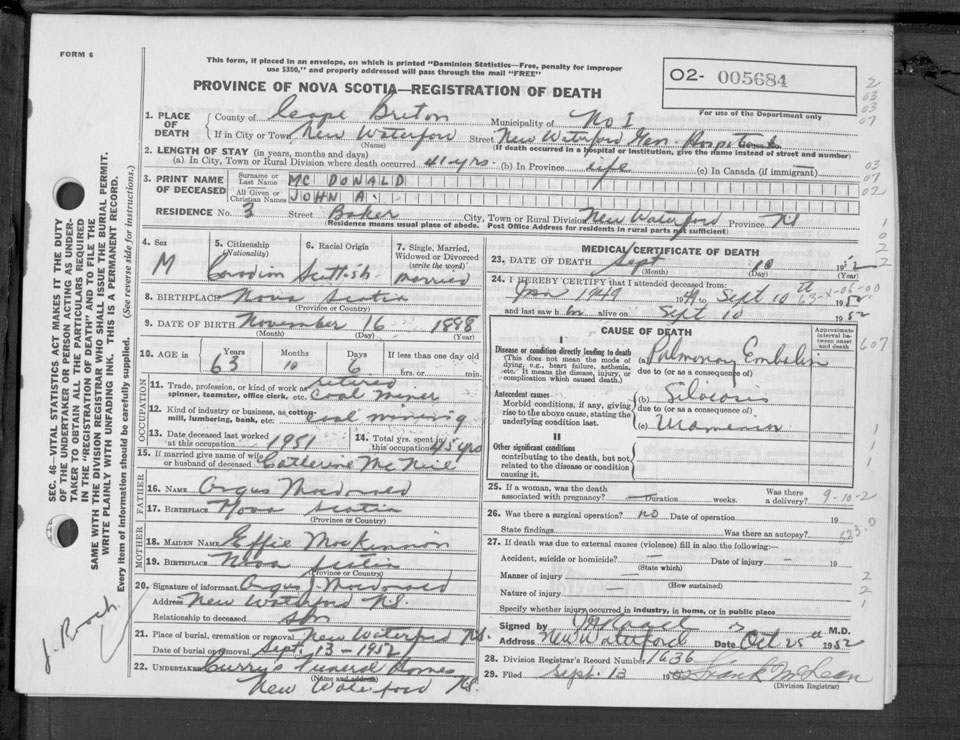 FORM 6
This form, if placed in an envelope, on which is printed "Dominion Statistics—Free, penalty for improper
use $300," and properly addressed will pass through the mail "FREE"
PROVINCE OF NOVA SCOTIA—REGISTRATION OF DEATH
O2- 005684
For use of the Department only
1. PLACE OF DEATH
County of Cape Breton Municipality of No 1
If in City or Town New Waterford Street New Waterford Gen. Hospital
(Name) (If death occurred in a hospital or institution, give the name instead of street and number)
2. LENGTH OF STAY (in years, months and days)
(a) In City, Town or Rural Division where death occurred 41 yrs. (b) In Province life (c) In Canada (if immigrant)
3. PRINT NAME OF DECEASED
Surname or Last Name MC DONALD
All Given or Christian Names JOHN A.
RESIDENCE No. 3 Street Baker City, Town or Rural Division New Waterford Province NS
(Residence means usual place of abode. Post Office Address for residents in rural parts not sufficient)
4. Sex M
5. Citizenship (Nationality) Canadian
6. Racial Origin Scottish
7. Single, Married, Widowed or Divorced (write the word) married
8. BIRTHPLACE Nova Scotia
(Province or Country)
9. DATE OF BIRTH November 16 1888
(Month) (Day) (Year)
10. AGE in Years 63 Months 10 Days 6 If less than one day old
hrs. or min.
OCCUPATION
11. Trade, profession, or kind of work as spinner, teamster, office clerk, etc. retired Coal miner
12. Kind of industry or business, as cotton mill, lumbering, bank, etc. Coal mining
13. Date deceased last worked at this occupation 1951
14. Total yrs. spent in this occupation 45 yrs
15. If married give name of wife or husband of deceased Catherine McNeil
FATHER
16. NAME Angus Macdonald
17. BIRTHPLACE Nova Scotia
(Province or Country)
MOTHER
18. MAIDEN NAME Effie MacKinnon
19. BIRTHPLACE Nova Scotia
(Province or Country)
20. Signature of informant Angus Macdonald
Address New Waterford N.S.
Relationship to deceased son
21. Place of burial, cremation or removal New Waterford NS.
Date of burial or removal Sept. 13 - 1952
22. UNDERTAKER Curry's Funeral Homes
(Name and address)
New Waterford NS.
MEDICAL CERTIFICATE OF DEATH
23. DATE OF DEATH Sept 10 1952
(Month) (Day)
24. I HEREBY CERTIFY that I attended deceased from:
Jan 1949 19 to Sept 10th 1952
and last saw him alive on Sept 10 1952
CAUSE OF DEATH
Approximate interval between onset and death
I
Disease or condition directly leading to death
(This does not mean the mode of dying, e.g., heart failure, asthenia, etc. It means the disease, injury, or complication which caused death.)
(a) Pulmonary Embolism
due to (or as a consequence of)
Antecedent causes
Morbid conditions, if any, giving rise to the above cause, stating the underlying condition last.
(b) Silicosis
due to (or as a consequence of)
(c)
II
Other significant conditions
contributing to the death, but not related to the disease or condition causing it.
25. If a woman, was the death associated with pregnancy? — Duration weeks. Was there a delivery?
9-10-2
26. Was there a surgical operation? no Date of operation 19
State findings Was there an autopsy?
27. If death was due to external causes (violence) fill in also the following:—
Accident, suicide or homicide? — Date of injury — 19
(State which)
Manner of injury —
(How sustained)
Nature of injury —
Specify whether injury occurred in industry, in home, or in public place
Signed by M.D.
Address New Waterford Date Oct 25th 1952
28. Division Registrar's Record Number 1636
29. Filed Sept. 13 1952 Frank McLean
(Division Registrar)
SEC. 46—VITAL STATISTICS ACT MAKES IT THE DUTY
OF THE UNDERTAKER OR PERSON ACTING AS UNDER-
TAKER TO OBTAIN ALL THE PARTICULARS REQUIRED
IN THE "REGISTRATION OF DEATH" AND TO FILE THE
SAME WITH THE DIVISION REGISTRAR WHO SHALL ISSUE THE BURIAL PERMIT.
WRITE PLAINLY WITH UNFADING INK. THIS IS A PERMANENT RECORD.
Every item of information should be carefully supplied. (See reverse side for instructions.)
607